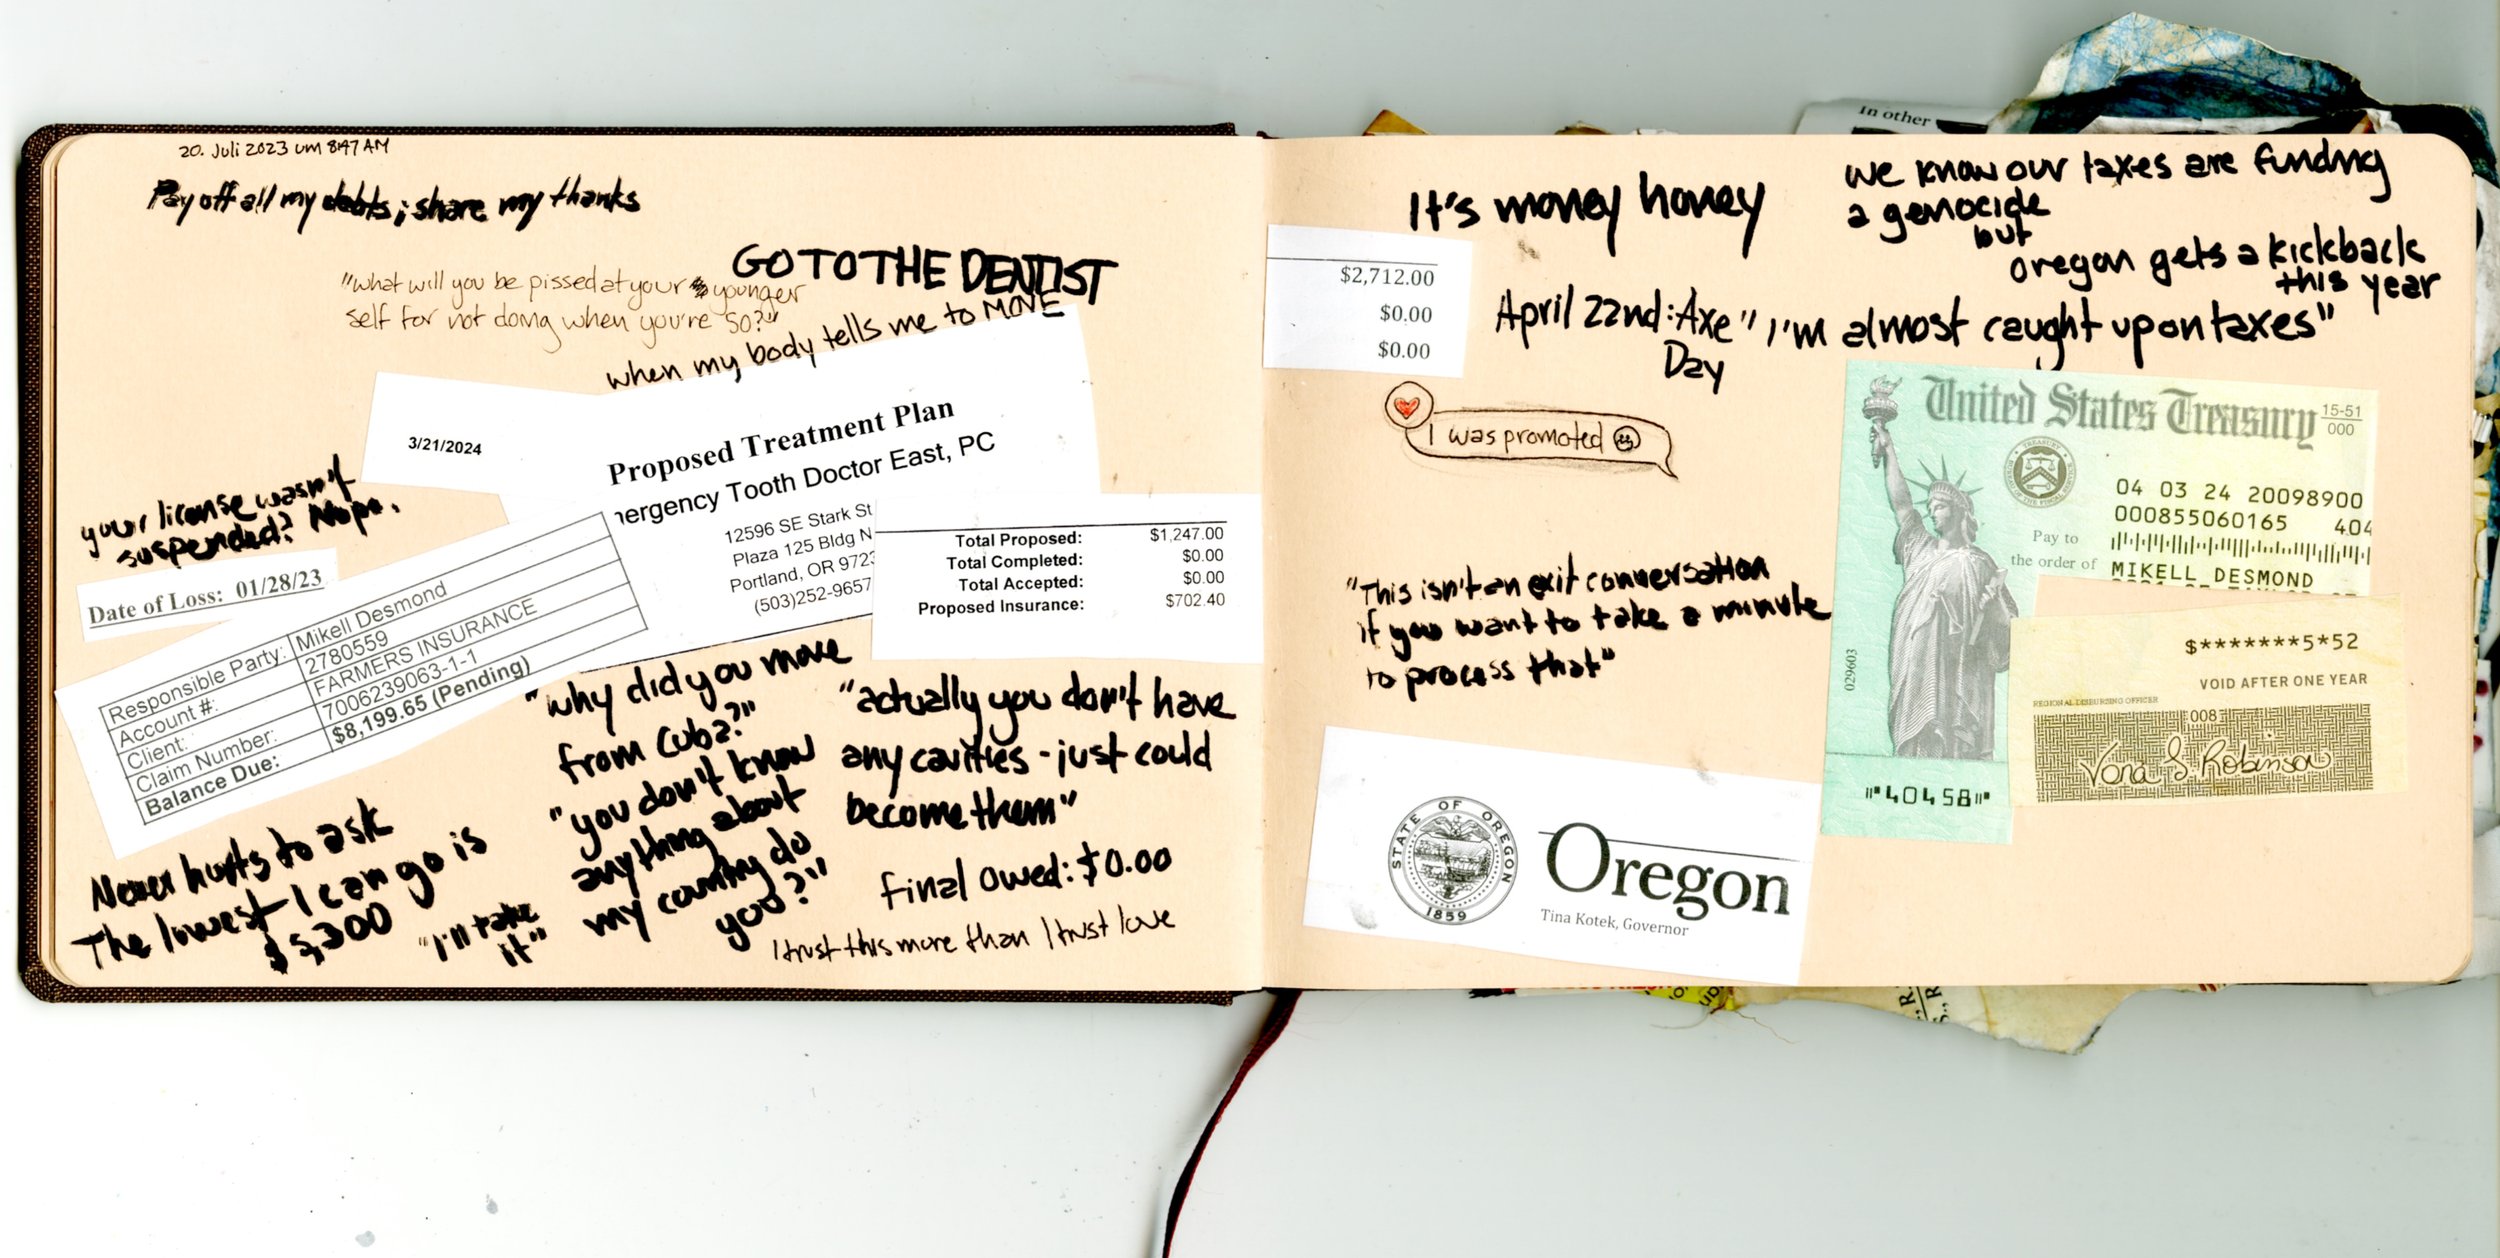 20. Juli 2023 um 8:47 AM
Pay off all my debts; share my thanks
GO TO THE DENTIST
"what will you be pissed at your younger
self for not doing when you're 50?"
when my body tells me to MOVE
3/21/2024
Proposed Treatment Plan
mergency Tooth Doctor East, PC
12596 SE Stark St
Plaza 125 Bldg N
Portland, OR 9723
(503)252-9657
Total Proposed: $1,247.00
Total Completed: $0.00
Total Accepted: $0.00
Proposed Insurance: $702.40
your license wasn't
suspended? Nope.
Date of Loss: 01/28/23
Responsible Party: Mikell Desmond
Account #: 2780559
Client: FARMERS INSURANCE
Claim Number: 7006239063-1-1
Balance Due: $8,199.65 (Pending)
Never hurts to ask
The lowest I can go is
$5,300
"I'll take
it"
"why did you move
from Cuba?"
"you don't know
anything about
my country do
you?"
"actually you don't have
any cavities - just could
become them"
final owed: $0.00
I trust this more than I trust love
In other
It's money honey
we know our taxes are funding
a genocide
but
oregon gets a kickback
this year
$2,712.00
$0.00
$0.00
April 22nd: Axe
Day
"I'm almost caught up on taxes"
I was promoted
"This isn't an exit conversation
if you want to take a minute
to process that"
United States Treasury
15-51
000
04 03 24 20098900
000855060165 404
Pay to
the order of
MIKELL DESMOND
$*******5*52
VOID AFTER ONE YEAR
REGIONAL DISBURSING OFFICER
008
Vona S. Robinson
029603
"40458"
STATE OF OREGON
1859
Oregon
Tina Kotek, Governor